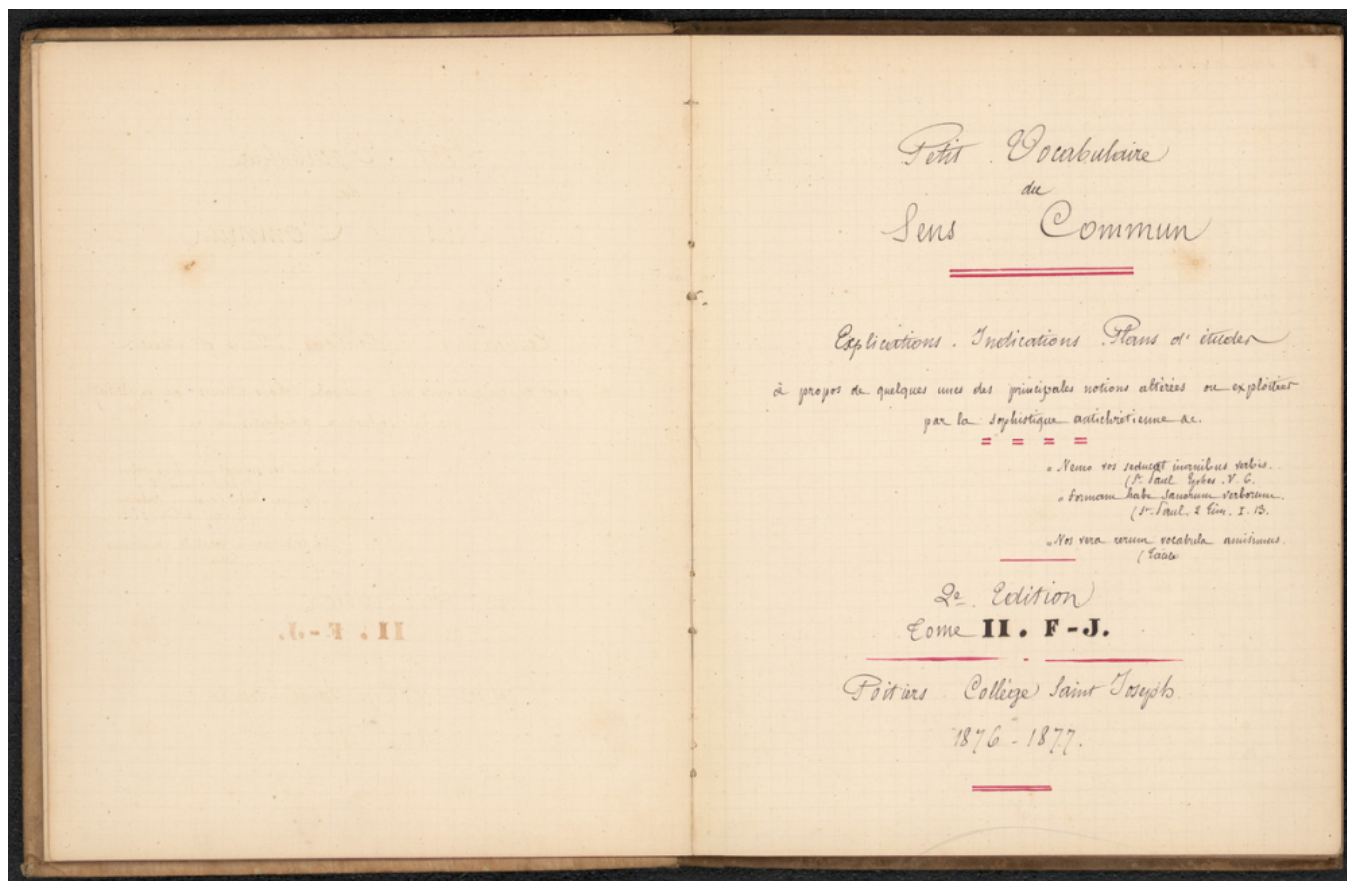 Petit Vocabulaire
du
Sens Commun
Explications. Indications. Plans d'études
à propos de quelques unes des principales notions altérées ou exploitées
par la sophistique antichrétienne &c.
"Nemo vos seducat inanibus verbis.
(St Paul Ephes. V. 6.
"Formam habe sanorum verborum.
(St Paul. 2 Tim. I. 13.
"Nos vera rerum vocabula amisimus.
2e Edition
Tome II. F-J.
Poitiers Collège Saint Joseph
1876-1877.